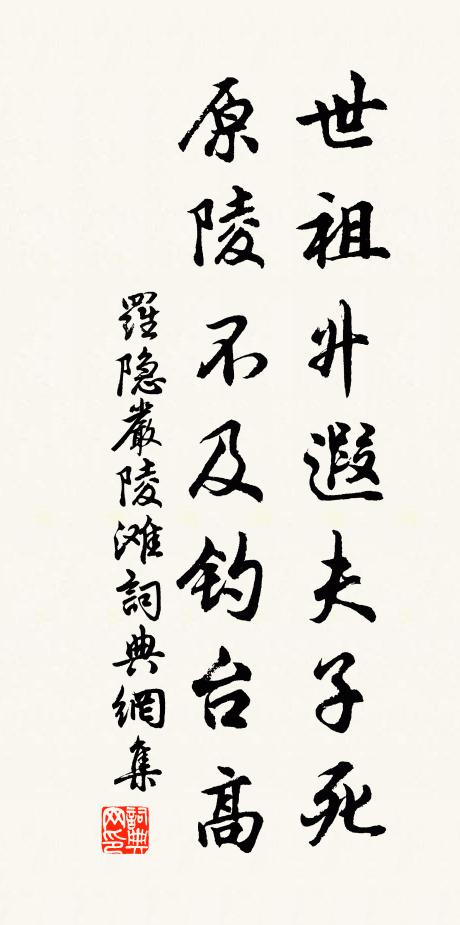 世祖升遐夫子死
原陵不及钓台高
羅隐嚴陵滩詞典網集
詞典网印